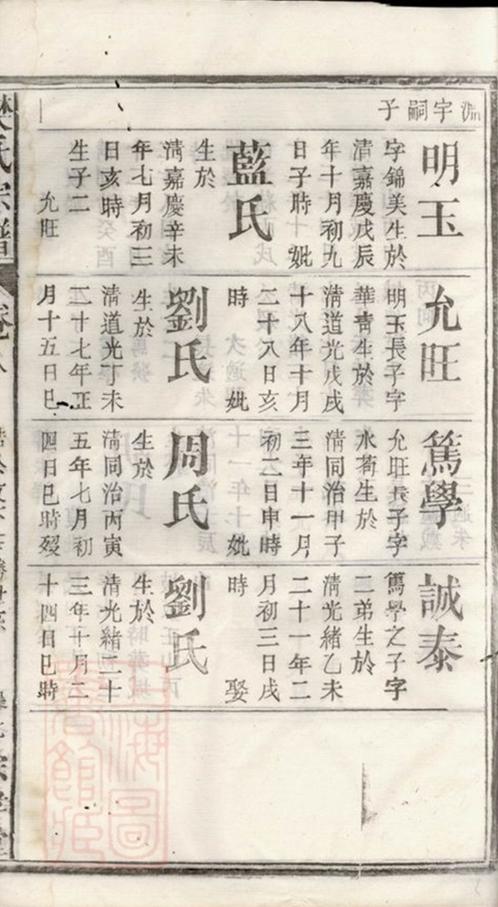 宇嗣子
明玉
字錦美生於
清嘉慶戊辰
年十月初九
日子時 妣
藍氏
生於
清嘉慶辛未
年七月初三
日亥時
生子二
允旺
允旺
明玉長子字
華青生於
清道光戊戌
十八年十月
二十八日亥
時 妣
劉氏
生於
清道光丁未
二十七年正
月十五日巳
篤學
允旺長子字
水 生於
清同治甲子
三年十一月
初二日申時
妣
周氏
生於
清同治丙寅
五年七月初
四日巳時歿
誠泰
篤學之子字
二弟生於
清光緒乙未
二十一年二
月初三日戌
時 娶
劉氏
生於
清光緒二十
三年十月二
十四日巳時
氏宗譜